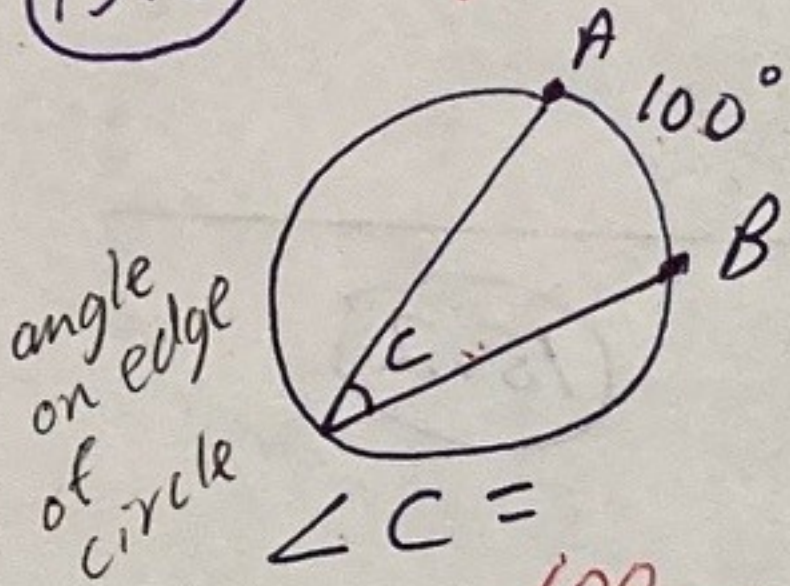 A
100°
B
C
angle
on edge
of
circle
∠C =